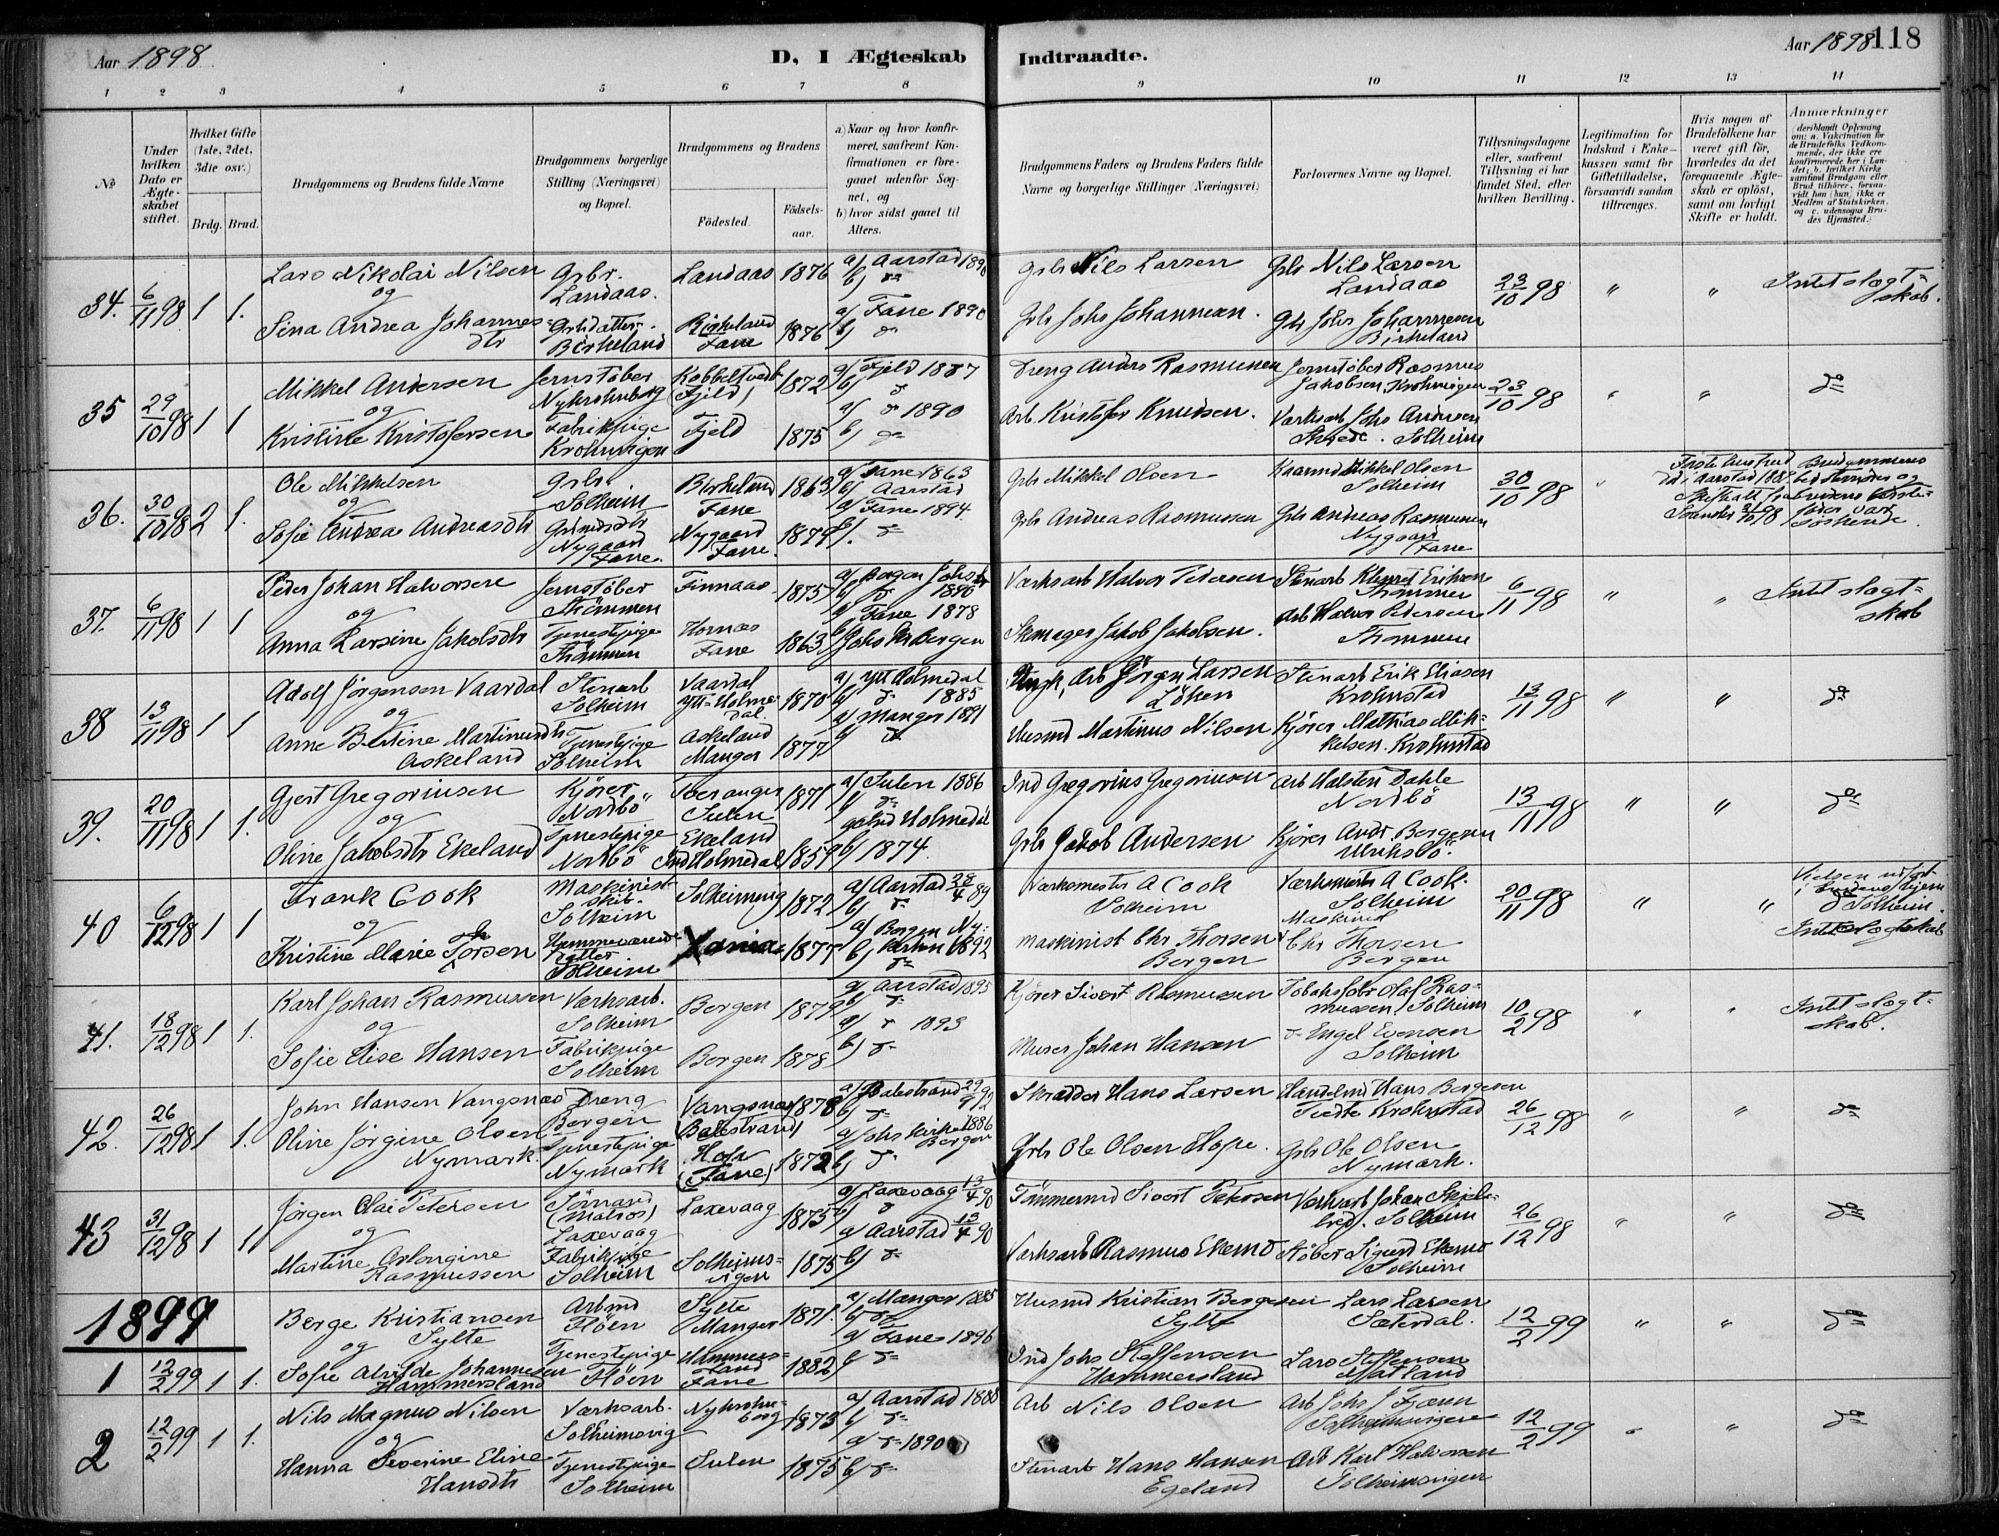 Aar 1898
D, I Ægteskab Indtraadte.
Aar 1898
118
1 2 3 4 5 6 7 8 9 10 11 12 13 14
No
Under hvilken Dato er Ægteskabet stiftet.
Hvilket Gifte (1ste, 2det, 3die osv.)
Brdg. Brud.
Brudgommens og Brudens fulde Navne
Brudgommens borgerlige Stilling (Næringsvei) og Bopæl.
Brudgommens og Brudens
Födested.
Födselsaar.
a) Naar og hvor konfirmeret, saafremt Konfirmationen er foregaaet udenfor Sognet, og
b) hvor sidst gaaet til Alters.
Brudgommens Faders og Brudens Faders fulde Navne og borgerlige Stillinger (Næringsvei)
Forlovernes Navne og Bopæl.
Tillysningsdagene eller, saafremt Tillysning ei har fundet Sted, efter hvilken Bevilling.
Legitimation for Indskud i Enkekassen samt for Giftetilladelse, forsaavidt saadan tiltrænges.
Hvis nogen af Brudefolkene har været gift før, hvorledes da det foregaaende Ægteskab er oplöst, samt om lovligt Skifte er holdt.
Anmærkninger
34. 6/11 98 1 1.
Lars Nikolai Nilsen Gsbr. Landaas. Landaas 1876 a) Aarstad 1890 b) do
og
Sina Andrea Johannesdtr Gbrsdatter Birkeland Birkeland Fane 1876 a) Fane 1890 b) do
Gsbr Nils Larsen Gbr Nils Larsen Landaas 23/10 98 " " Intet slægtskab.
Gbr Johs Johannesen. Gbr Johs Johannesen Birkeland
35 29/10 98 1 1
Mikkel Andersen Jernstøber Nykrohnborg Kobbeltvedt (Fjeld) 1872 a) Fjeld 1887 b) do
og
Kristine Kristofersen Fabrikpige Krohnvigen Fjeld 1875 a) do 1890 b) do
Dreng Anders Rasmussen Jernstøber Rasmus Jakobsen, Krohnvigen 23/10 98 " " do
Arb. Kristofer Knudsen. Værksarb Johs Andersen Solheim
36. 30/10 98 2 1.
Ole Mikkelsen Gsbr. Solheim Birkeland Fane 1863 a) Fane 1863 b) Aarstad
og
Sofie Andrea Andreasdtr Nygaard Fane. Nygaard Fane. 1879 a) Fane 1894 b). do
Gsbr Mikkel Olsen Mikkel Olsen Solheim 30/10 98 "
Gsbr Andreas Rasmussen Gsbr Andreas Rasmussen Nygaard Fane
37. 6/11 98 1 1
Peder Johan Halvorsen Jernstøber Strømmen Finnaas 1875 a) Bergen Johs 1890 b) do
og
Anna Larsine Jakobsdtr Tjenestepige Strømmen Hornæs Fane 1863 a) Fane 1878 b) Johs K Bergen
Værksarb Halvor Pedersen Stenarb Eriksen Strømmen 6/11 98 " " Intet slægtskab
Skomager Jakob Jakobsen. Arb Halvor Pedersen Strømmen
38 13/11 98 1 1
Adolf Jørgensen Vaardal Stenarb Solheim Vaardal Ytt-Holmedal 1870 a) Ytt Holmedal 1885 b) do
og
Anne Bertine Martinusdtr Askeland Tjenestepige Solheim Askeland Manger 1877 a) Manger 1891 b) do
Arb Jørgen Larsen Løken Stenarb Erik Eliasen Krohnstad 13/11 98 " " do
Husmd Martinus Nilsen Kjører Mathias Mikkelsen. Krohnstad
39. 20/11 98 1 1.
Gjert Gregoriusen Kjører Nordbö Sulen 1871 a) Sulen 1886 b) do
og
Oline Jakobsdtr Ekeland Tjenestepige Nordbö Ekeland Ind Holmedal 1859 a) Ind Holmedal b) 1874.
Ind Gregorius Gregoriusen Arb Halsten Dahle Nordbö 13/11 98 " " do
Gsbr Jakob Andersen Kjører Andr. Bergesen Ulriksbö.
40 6/12 98 1 1
Frank Cook Maskinist skib. Solheim Solheimsvig 1872 a) Aarstad 28/4 89 b) do
og
Kristine Marie Thorsen Hjemmeværende Datter Solheim Xania 1877 a) Bergen Nykirken 1892 b) do
Værksmester A Cook Solheim Værksmester A Cook. Solheim 20/11 98 " " Vielsen udført i Brudens hjem Solheim. Intet slægtskab
Maskinist Chr Thorsen Bergen Maskinist Chr Thorsen Bergen
41. 18/12 98 1 1.
Karl Johan Rasmussen Værksarb. Solheim Bergen 1879 a) Aarstad 1895 b) do
og
Sofie Elise Hansen Fabrikpige Solheim Bergen 1878 a) do 1893 b) do
Kjører Sivert Rasmussen Olaf Rasmussen, Solheim 10/2 98 " " Intet slægtskab.
Murer Johan Hansen do Engel Evensen Solheim
42. 26/12 98 1 1.
John Hansen Vangsnæs Dreng Bergen Vangsnæs (Balestrand) 1878 a) Balestrand 29/9 92 b) do
Oline Jørgine Olsen Nymark. Tjenestepige Nymark Hope (Fane) 1872 a) Johs Kirke 1886 Bergen b) do
Skrædder Hans Larsen Handelsmd Hans Bergesen Krohnstad 26/12 98 " " do
Gsbr Ole Olsen Hope. Gsbr Ole Olsen Nymark.
43 31/12 98 1 1
Jørgen Olai Petersen Sömand (Matros) Laxevaag Laxevaag 1875 a) Laxevaag 13/4 90 b) do
og
Martine Rasmussen Fabrikpige Solheim Solheimsvigen 1875 a) Aarstad 13/4 90 b) do
Tömmermd Sivert Petersen Værksarb Johan Solheim 26/12 98 " " do
Værksarb Rasmus Ekemo Støber Sigurd Ekemo Solheim
1899
1 12/2 99 1 1.
Berge Kristiansen Sylte Arbmd Flöen Sylte Manger 1871. a) Manger 1885 b) do
og
Sofie Alvilde Johannesen Hammersland Tjenestepige Flöen Hammersland Fane 1882 a) Fane 1896 b) do
Husmd Kristian Bergesen Sylte Lars Larsen Sæterdal. 12/2 99 " " do
Ind Johs Steffensen Hammersland Lars Steffensen Natland
2 12/2 99 1 1.
Nils Magnus Nilsen Værksarb. Solheimsvig Nykrohnborg 1873 a) Aarstad 1888 b) do
og
Hanna Severine Eline Hansdtr Tjenestepige Solheim Sulen 1875 a) do 1890 b) do
Arb Nils Olsen Arb Johs J Solheimsvigen 12/2 99 " " do
Stenarb Hans Hansen Egeland Arb Karl Halvorsen Solheimsvigen